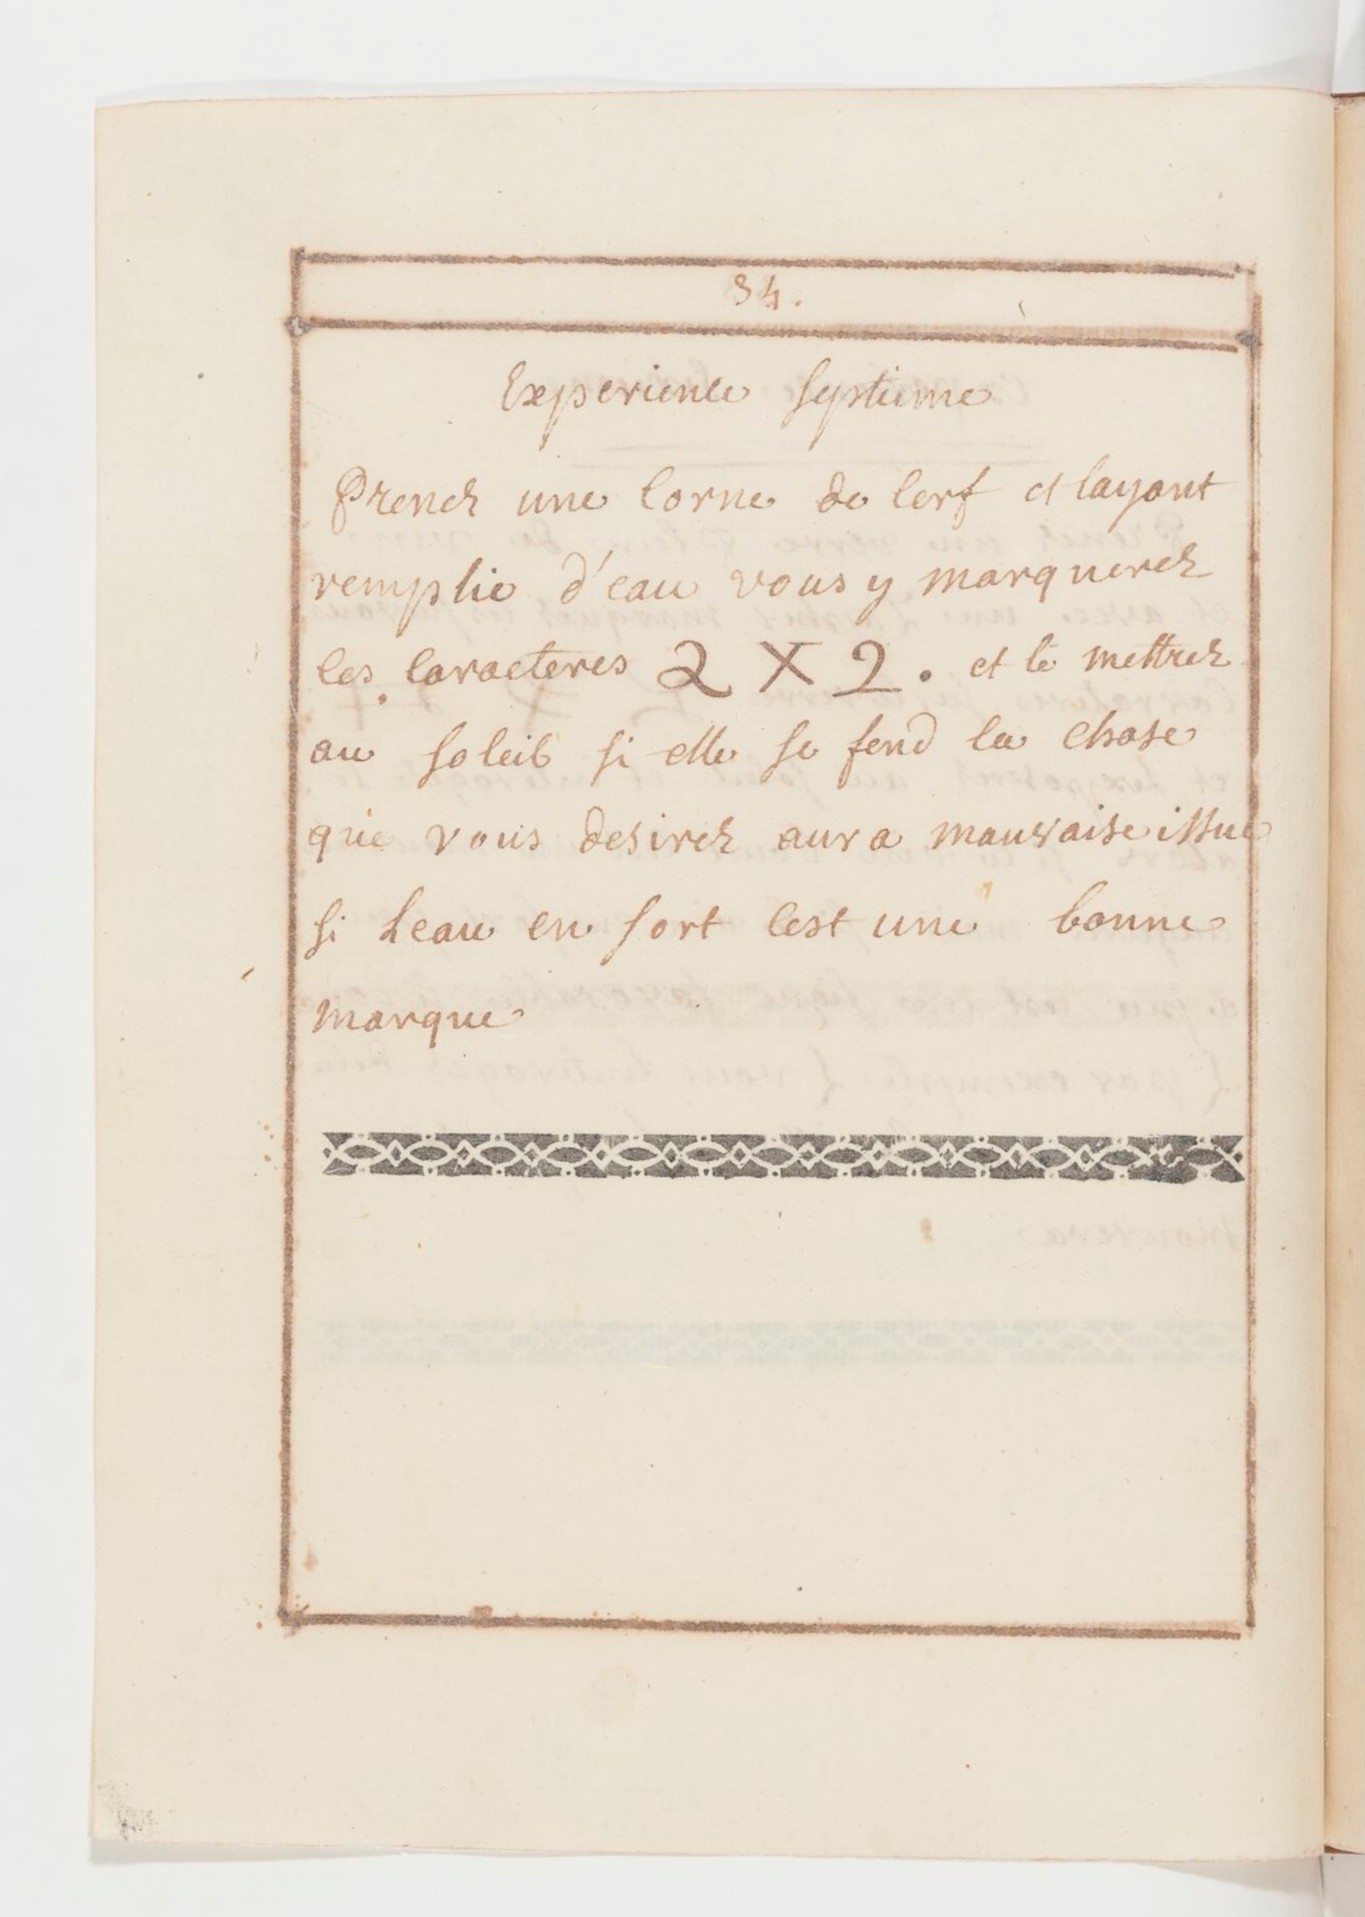 34.
Experience septieme
Prenez une Corne de Cerf et layant
remplie d'eau vous y marquerez
les caracteres 2 X 2. et le mettrez
au soleil si elle se fend la chose
que vous desirez aura mauvaise issue
si Leau en sort Cest une bonne
marque